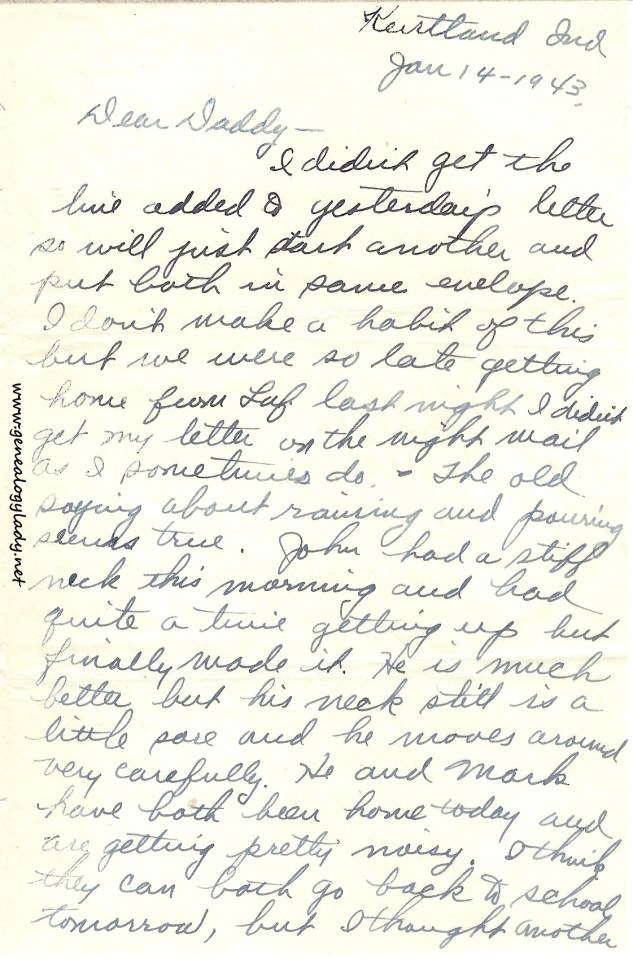 Kentland Ind
Jan 14-1943.
Dear Daddy-
I didn't get the
line added to yesterday's letter
so will just start another and
put both in same envelope.
I don't make a habit of this
but we were so late getting
home from Laf last night I didn't
get my letter on the night mail
as I sometimes do. - The old
saying about raining and pouring
seems true. John had a stiff
neck this morning and had
quite a time getting up but
finally made it. He is much
better but his neck still is a
little sore and he moves around
very carefully. He and Mark
have both been home today and
are getting pretty noisy. I think
they can both go back to school
tomorrow, but I thought another
www.genealogylady.net